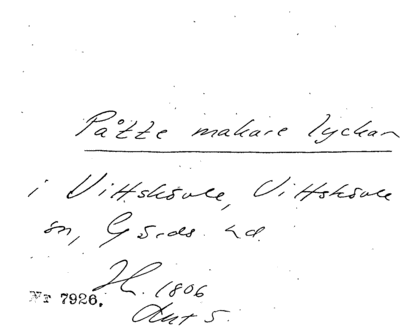 Påtte makare lyckan
i Vittskövle, Vittskövle
sn, Gärds hd.
1806
Nr 7926.
Akt 5.